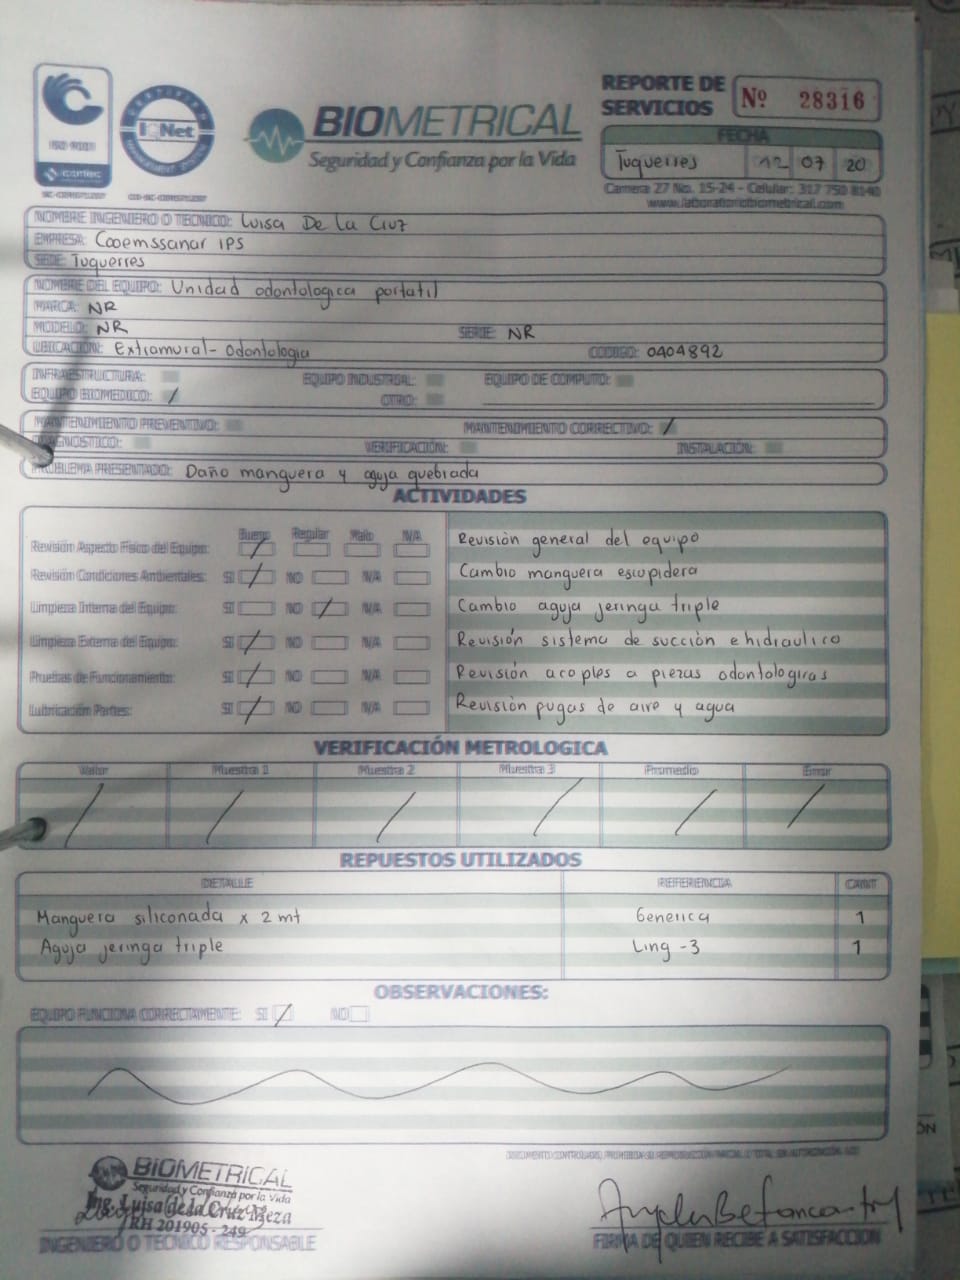 REPORTE DE SERVICIOS
Nº 28316
CERTIFIED
IQNet
MANAGEMENT SYSTEM
ISO 9001
icontec
BIOMETRICAL
Seguridad y Confianza por la Vida
FECHA
Tuquerres 12 07 20
Carrera 27 No. 15-24 - Celular: 317 750 8140
www.laboratoriobiometrical.com
NOMBRE INGENIERO O TECNICO: Luisa De La Cruz
EMPRESA: Cooemssanar IPS
SEDE: Tuquerres
NOMBRE DEL EQUIPO: Unidad odontologica portatil
MARCA: NR
MODELO: NR SERIE: NR
UBICACIÓN: Extramural - Odontologia CODIGO: 0404892
INFRAESTRUCTURA: EQUIPO INDUSTRIAL: EQUIPO DE COMPUTO:
EQUIPO BIOMEDICO: / OTRO:
MANTENIMIENTO PREVENTIVO: MANTENIMIENTO CORRECTIVO: /
DIAGNOSTICO: VERIFICACIÓN: INSTALACIÓN:
PROBLEMA PRESENTADO: Daño manguera y aguja quebrada
ACTIVIDADES
Bueno Regular Malo N/A
Revisión Aspecto Fisico del Equipo: /
Revisión Condiciones Ambientales: SI / NO N/A
Limpieza Interna del Equipo: SI NO / N/A
Limpieza Externa del Equipo: SI / NO N/A
Pruebas de Funcionamiento: SI / NO N/A
Lubricación Partes: SI / NO N/A
Revisión general del equipo
Cambio manguera escupidera
Cambio aguja jeringa triple
Revisión sistema de succión e hidraulico
Revisión acoples a piezas odontologicas
Revisión pugas de aire y agua
VERIFICACIÓN METROLOGICA
Valor Muestra 1 Muestra 2 Muestra 3 Promedio Error
/ / / / / /
REPUESTOS UTILIZADOS
DETALLE REFERENCIA CANT
Manguera siliconada x 2 mt Generica 1
Aguja jeringa triple Ling -3 1
OBSERVACIONES:
EQUIPO FUNCIONA CORRECTAMENTE: SI / NO
BIOMETRICAL
Seguridad y Confianza por la Vida
Ing. Luisa de la Cruz Meza
RH 201905 - 249
INGENIERO O TECNICO RESPONSABLE
FIRMA DE QUIEN RECIBE A SATISFACCION